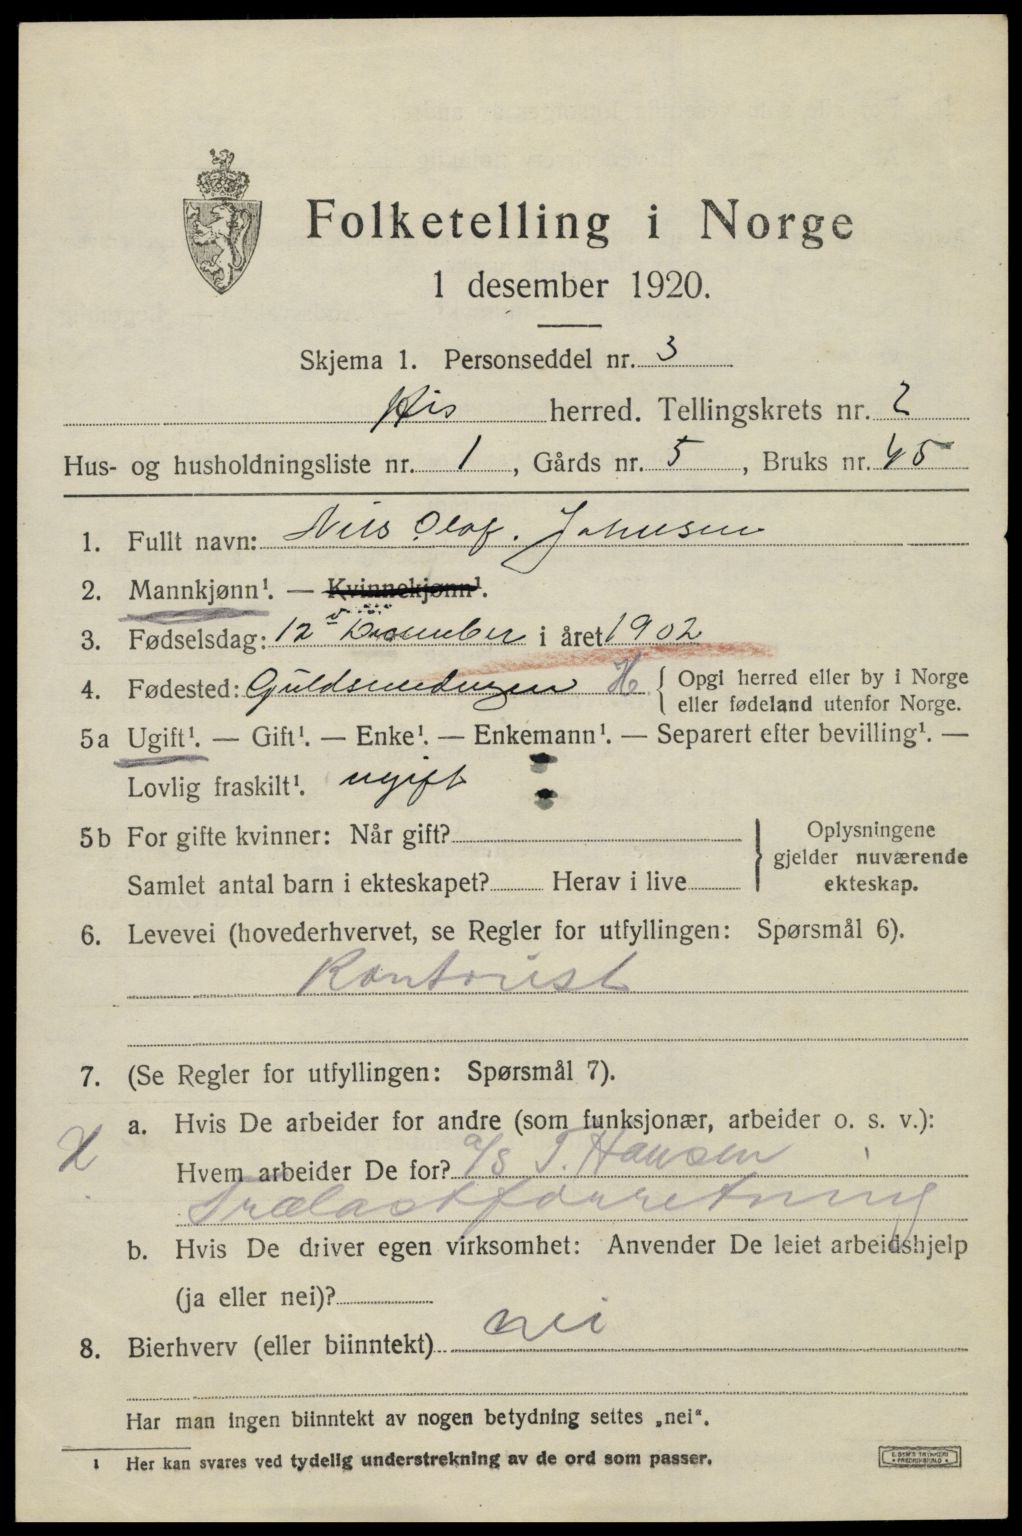 Folketelling i Norge
1 desember 1920.
Skjema 1. Personseddel nr. 3
His herred. Tellingskrets nr. 2
Hus- og husholdningsliste nr. 1, Gårds nr. 5, Bruks nr. 45
1. Fullt navn: Nils Olaf. Johnsen
2. Mannkjønn¹. — Kvinnekjønn¹.
3. Fødselsdag: 12 Desember i året 1902
4. Fødested: Guldsmedengen H { Opgi herred eller by i Norge
eller fødeland utenfor Norge.
5a Ugift¹. — Gift¹. — Enke¹. — Enkemann¹. — Separert efter bevilling¹. —
Lovlig fraskilt¹. ugift
5b For gifte kvinner: Når gift?
Samlet antal barn i ekteskapet? Herav i live
} Oplysningene
gjelder nuværende
ekteskap.
6. Levevei (hovederhvervet, se Regler for utfyllingen: Spørsmål 6).
Kontorist
7. (Se Regler for utfyllingen: Spørsmål 7).
a. Hvis De arbeider for andre (som funksjonær, arbeider o. s. v.):
Hvem arbeider De for? a/s T. Hansen
Trælastforretning
b. Hvis De driver egen virksomhet: Anvender De leiet arbeidshjelp
(ja eller nei)?
8. Bierhverv (eller biinntekt) nei
Har man ingen biinntekt av nogen betydning settes „nei“.
¹ Her kan svares ved tydelig understrekning av de ord som passer.